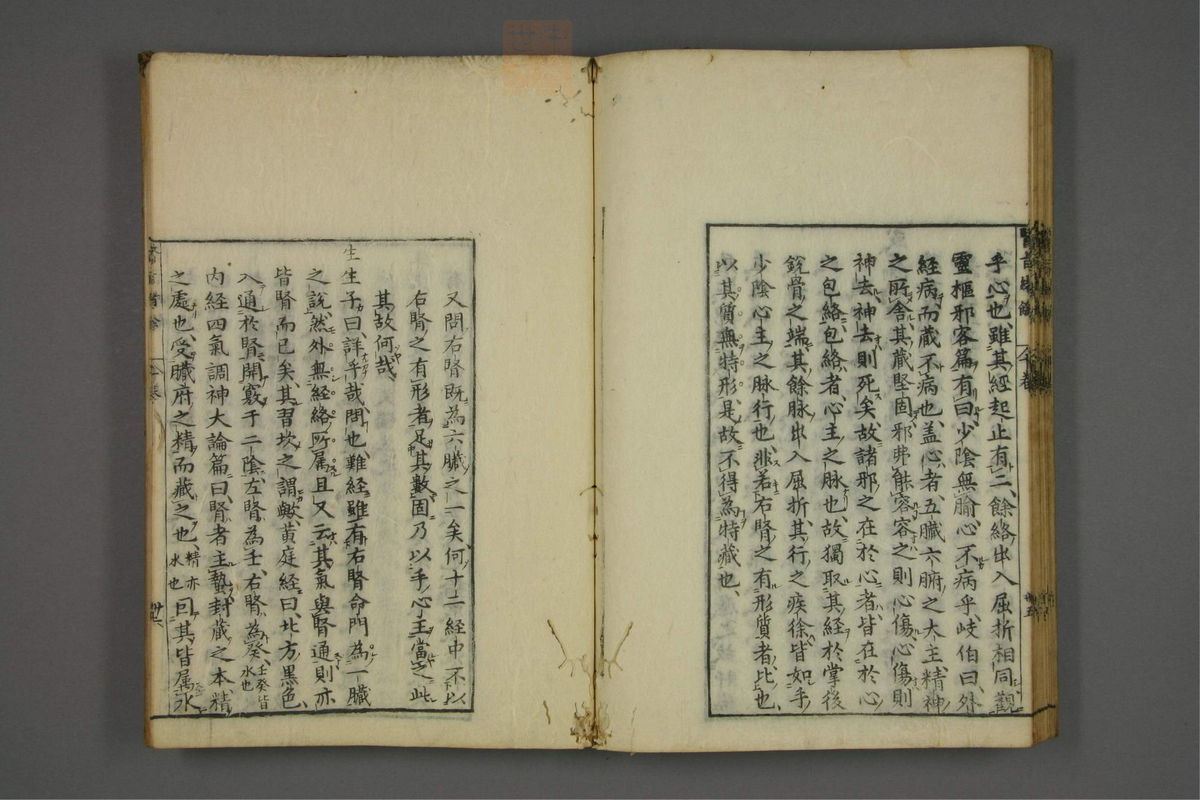 乎心也雖其經起止有二餘絡出入屈折相同觀
靈樞邪客篇有曰少陰無腧心不病乎岐伯曰外
經病而藏不病也蓋心者五臟六腑之大主精神
之所舍其藏堅固邪弗能容容之則心傷心傷則
神去神去則死矣故諸邪之在於心者皆在於心
之包絡包絡者心主之脉也故獨取其經於掌後
銳骨之端其餘脉出入屈折其行之疾徐皆如手
少陰心主之脉行也非若右腎之有形質者比也
以其質無特形是故不得為特藏也
又問右腎既為六臟之一矣何十二經中不以
右腎之有形者足其數固乃以手心主當之此
其故何哉
生生子曰詳乎哉問也難經雖有右腎命門為一臟
之說然外無經絡所属且又云其氣與腎通則亦
皆腎而已矣其習坎之謂歟黃庭經曰北方黒色
入通於腎開竅于二陰左腎為壬右腎為癸壬癸皆水也
内経四氣調神大論篇曰腎者主蟄封藏之本精
之處也受臟府之精而藏之也精亦水也曰其皆属水